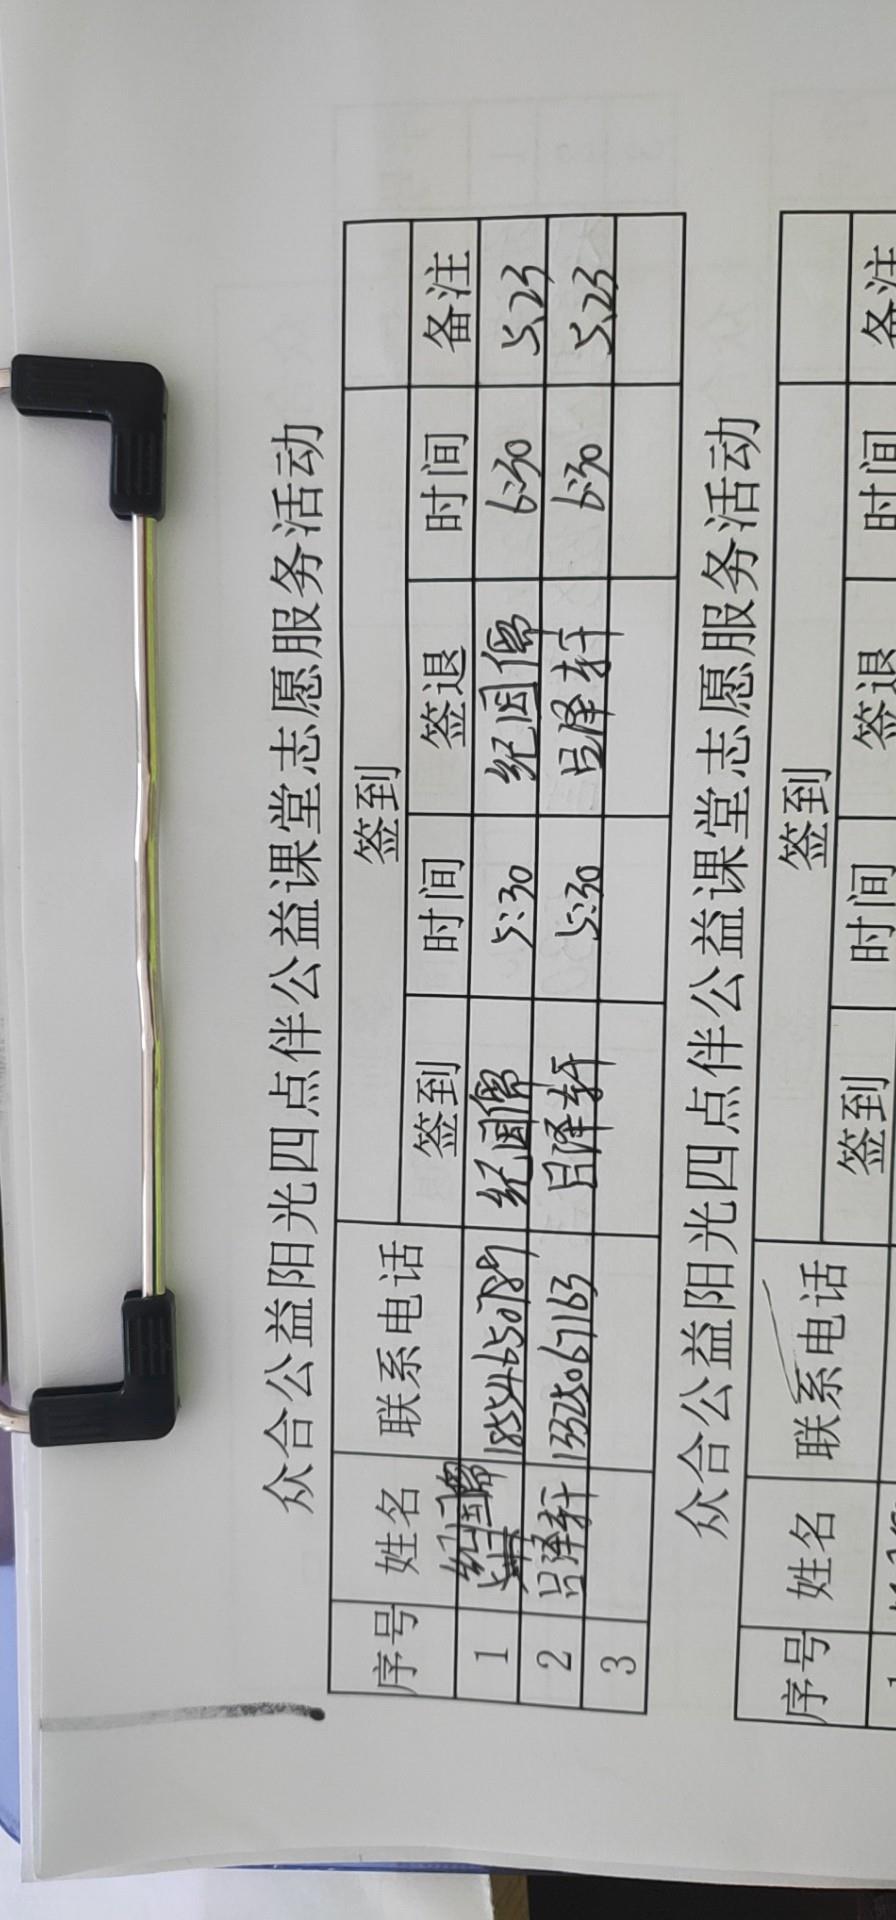 众合公益阳光四点伴公益课堂志愿服务活动
序号 姓名 联系电话 签到
签到 时间 签退 时间 备注
1 纪国儒 18554650789 纪国儒 5:30 纪国儒 6:30 5.23
2 吕泽轩 13325067163 吕泽轩 5:30 吕泽轩 6:30 5.23
3
众合公益阳光四点伴公益课堂志愿服务活动
序号 姓名 联系电话 签到
签到 时间 签退 时间 备注
1